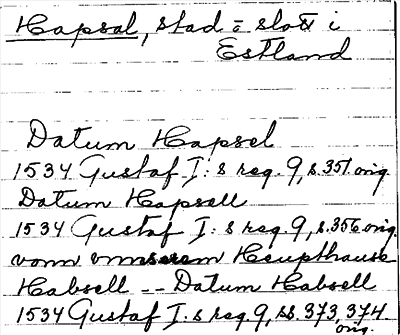 Hapsal, stad o slott i
Estland
Datum Hapsel
1534 Gustaf I: s reg. 9, s. 351. orig.
Datum Hapsell
1534 Gustaf I: s reg. 9, s. 356 orig.
vonn vnnserem Heupthause
Habsell -- Datum Habsell
1534 Gustaf I: s reg. 9, ss. 373, 374
orig.